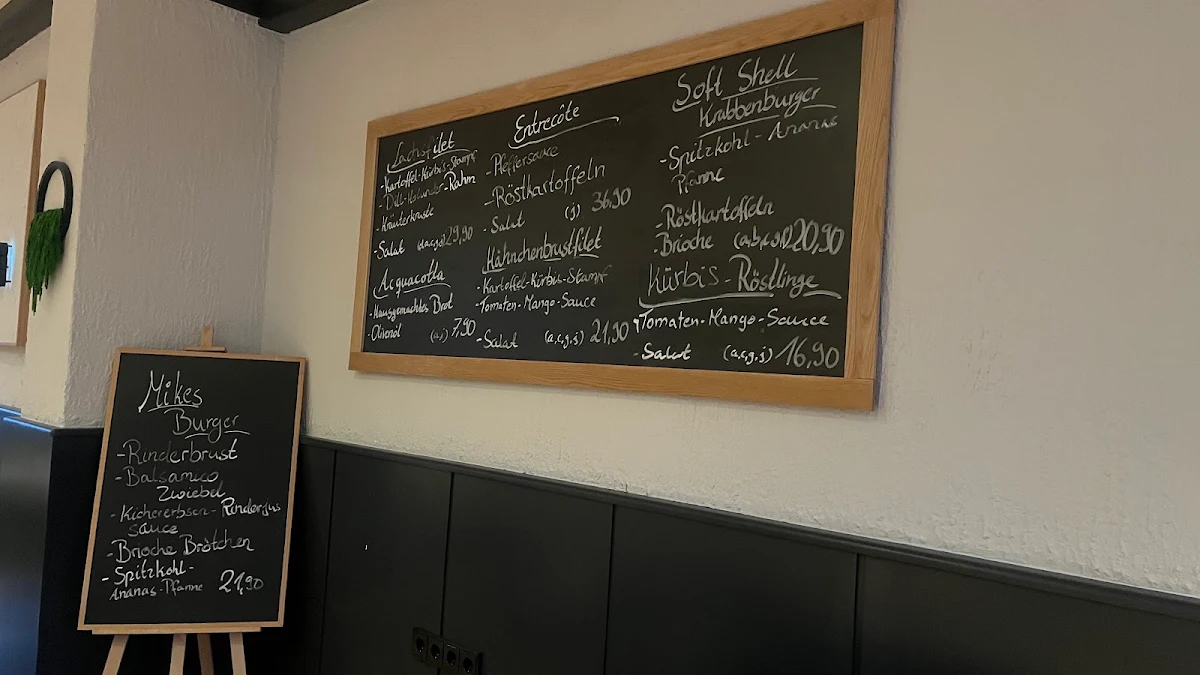 Lachsfilet
-Kartoffel-Kürbis-Stampf
-Dill-Holunder-Rahm
-Kräuterkruste
-Salat (d,a,c,g,j) 29,90
Acquacotta
-Hausgemachtes Brot
-Olivenöl (a,i) 7,90
Entrecôte
-Pfeffersauce
-Röstkartoffeln
-Salat (j) 36,90
Hähnchenbrustfilet
-Kartoffel-Kürbis-Stampf
-Tomaten-Mango-Sauce
-Salat (a,c,g,j) 21,90
Soft Shell
Krabbenburger
-Spitzkohl-Ananas
Pfanne
-Röstkartoffeln
-Brioche 20,90
Kürbis-Röstlinge
-Tomaten-Mango-Sauce
-Salat (a,c,g,j) 16,90
Mikes
Burger
-Rinderbrust
-Balsamico
Zwiebel
-Kichererbsen-Rinderjus
sauce
-Brioche Brötchen
-Spitzkohl-
Ananas-Pfanne 21,90